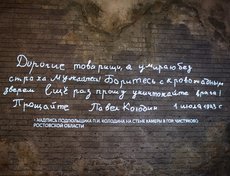 Дорогие товарищи, я умираю без
страха Мужайтесь! Боритесь с кровожадным
зверем Ещё раз прошу уничтожайте врага!
Прощайте Павел Колодин 1 июля 1943 г
- НАДПИСЬ ПОДПОЛЬЩИКА П.И. КОЛОДИНА НА СТЕНЕ КАМЕРЫ В ГОР. ЧИСТЯКОВО
РОСТОВСКОЙ ОБЛАСТИ